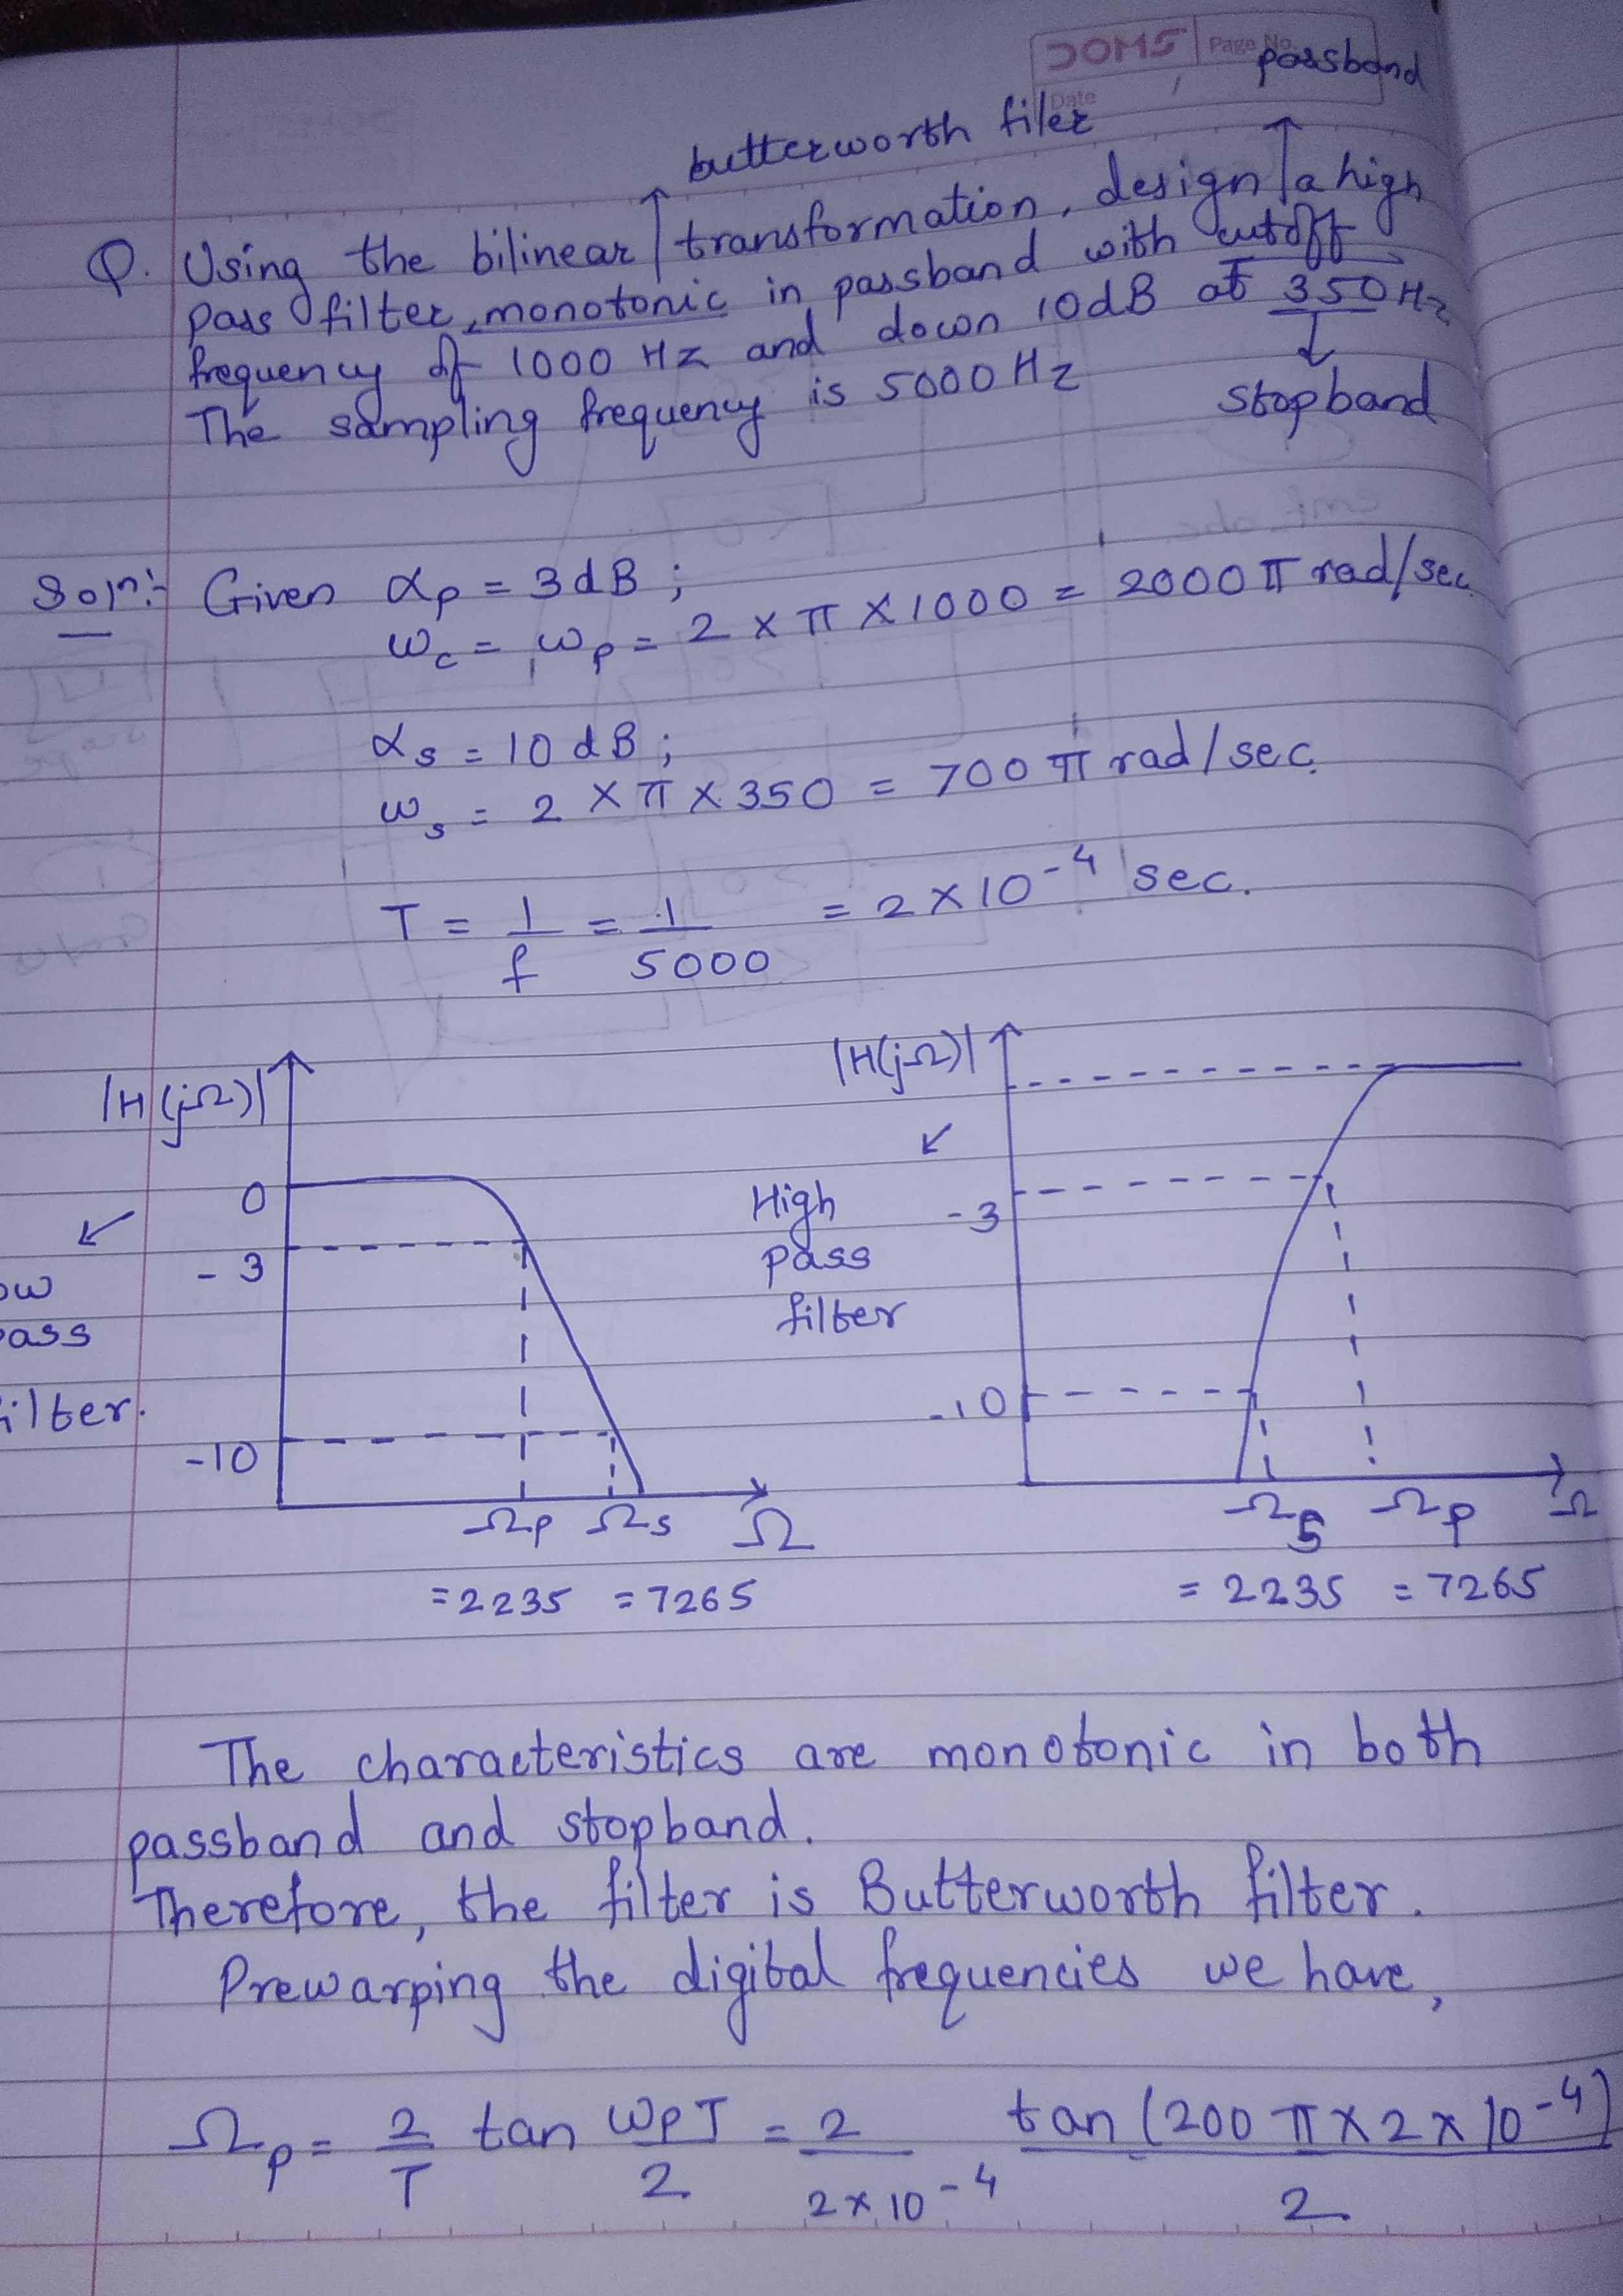 DOMS Page No.
Date /
passband
butterworth filer
Q. Using the bilinear transformation, design a high
pass filter, monotonic in passband with cutoff
frequency of 1000 Hz and down 10dB at 350 Hz
The sampling frequency is 5000 Hz
stopband
Soln:- Given αp = 3dB ;
ωc = ωp = 2 × π × 1000 = 2000 π rad/sec
αs = 10 dB ;
ωs = 2 × π × 350 = 700 π rad/sec.
T = 1/f = 1/5000 = 2 × 10^-4 sec.
|H(jΩ)|
0
-3
-10
ow
pass
filter.
Ωp Ωs Ω
= 2235 = 7265
|H(jΩ)|
High
pass
filter
-3
-10
Ωs Ωp Ω
= 2235 = 7265
The characteristics are monotonic in both
passband and stopband.
Therefore, the filter is Butterworth filter.
Prewarping the digital frequencies we have,
Ωp = 2/T tan ωpT/2 = 2/(2×10^-4) tan (200 π × 2 × 10^-4)/2